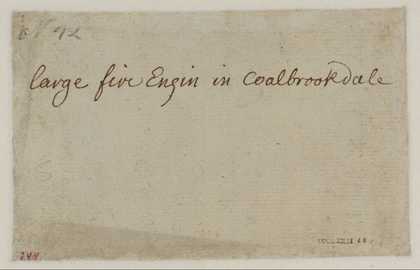 large fire Engin in Coalbrookdale